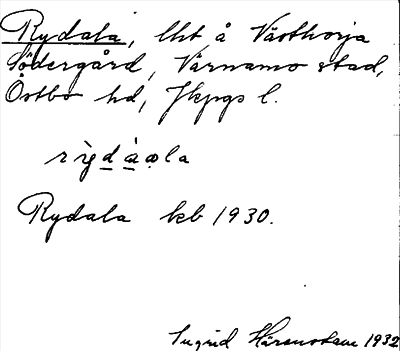 Rydala, lht å Västhorja
Södergård, Värnamo stad,
Östbo hd, Jkpgs l.
Rydala kb 1930.
Ingrid 1932